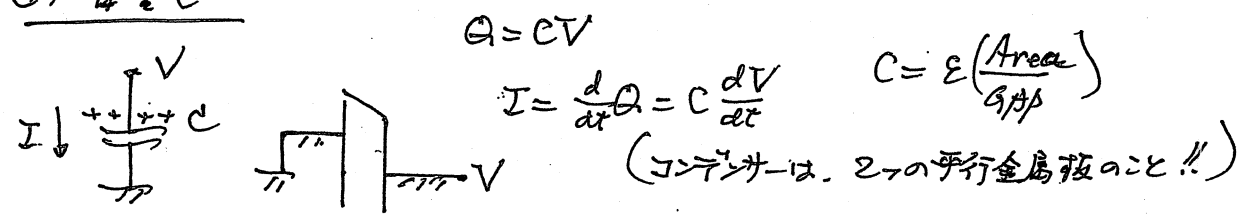 Q = CV
I = d/dt Q = C dV/dt
C = ε(Area/GAP)
(コンデンサーは、2つの平行金属板のこと!!)
V
I ↓ ++ ++ C
V